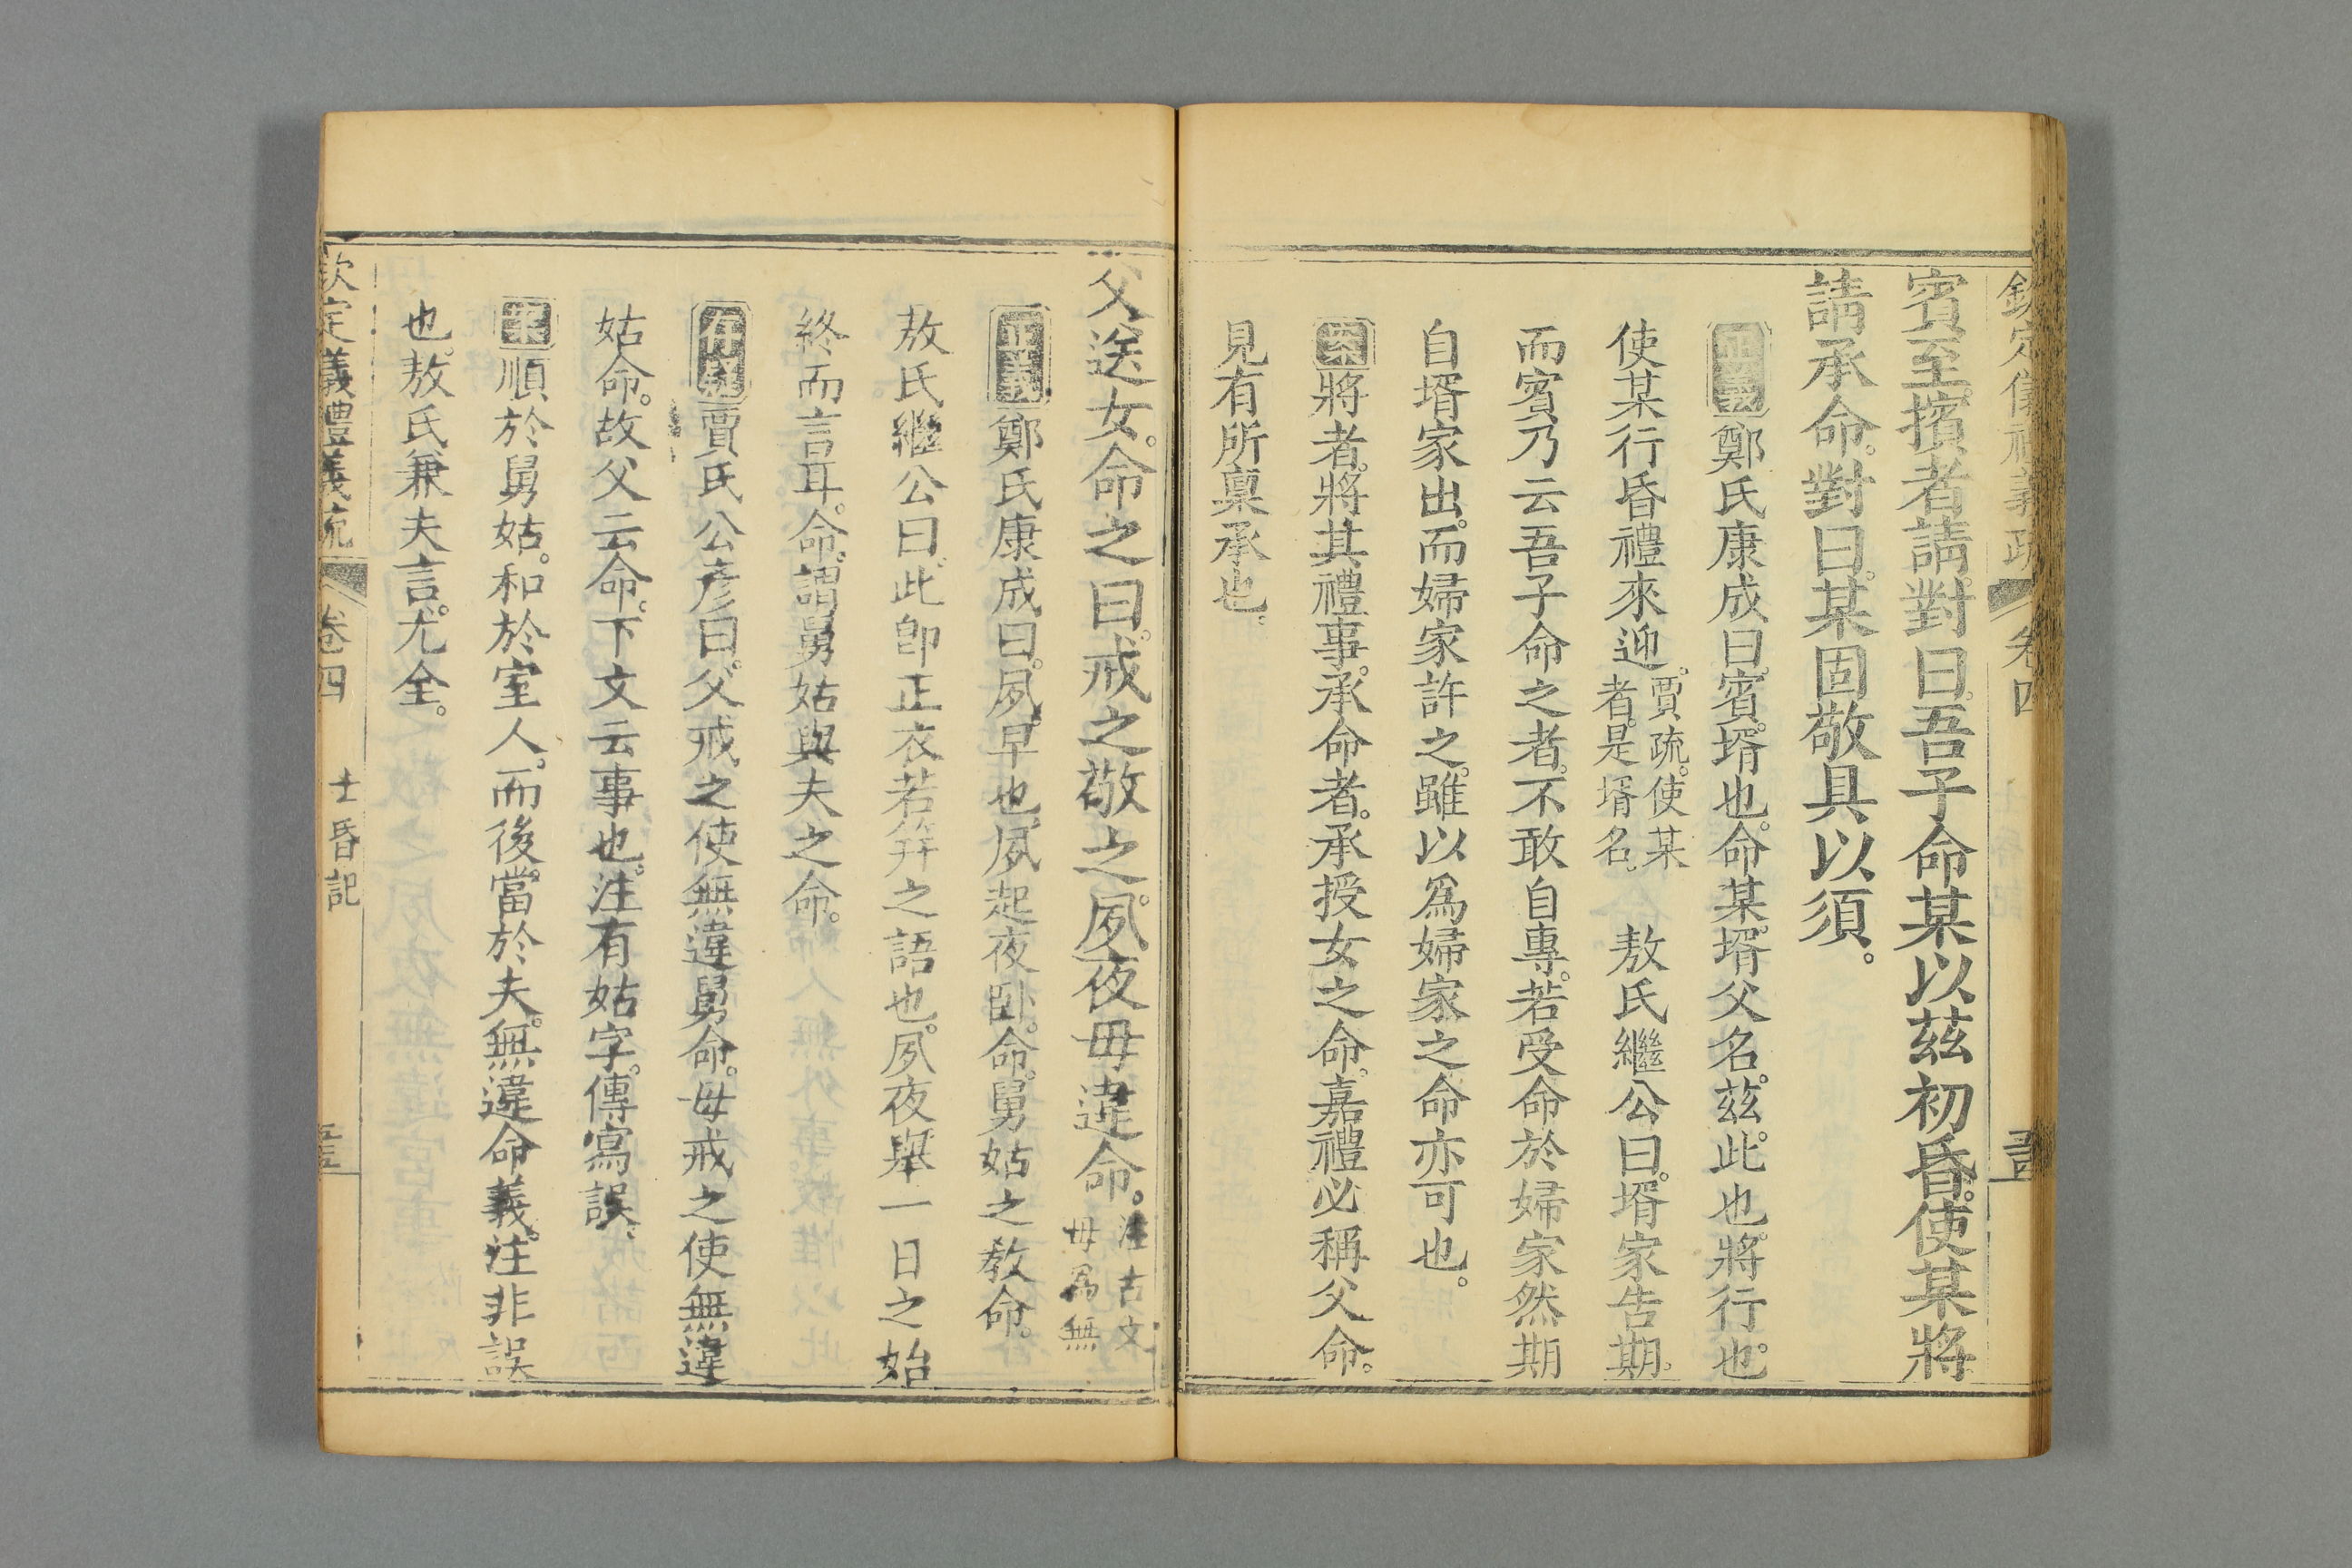 欽定儀禮義疏 卷四
賓至擯者請對曰吾子命某以茲初昏使某將
請承命對曰某固敬具以須
正義鄭氏康成曰賓壻也命某壻父名茲此也將行也
使某行昏禮來迎賈疏使某者是壻名 敖氏繼公曰壻家告期
而賓乃云吾子命之者不敢自專若受命於婦家然期
自壻家出而婦家許之雖以爲婦家之命亦可也
案將者將其禮事承命者承授女之命嘉禮必稱父命
見有所稟承也
父送女命之曰戒之敬之夙夜毋違命注古文毋爲無
正義鄭氏康成曰夙早也夙起夜卧命舅姑之教命
敖氏繼公曰此卽正衣若笄之語也夙夜舉一日之始
終而言耳命謂舅姑與夫之命
存疑賈氏公彥曰父戒之使無違舅命母戒之使無違
姑命故父云命下文云事也注有姑字傳寫誤
案順於舅姑和於室人而後當於夫無違命義注非誤
也敖氏兼夫言尤全
欽定儀禮義疏 卷四 士昏記